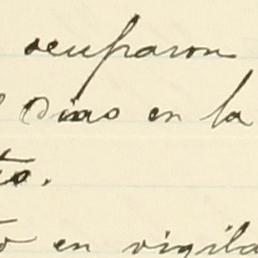 ocuparon
dias en la
to.
en vigila